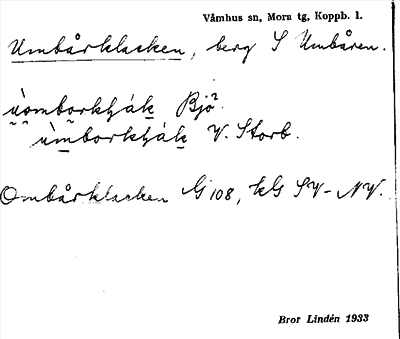 Våmhus sn, Mora tg, Koppb. l.
Umbårklacken, berg S Umbåren.
Bjö.
V. Storb.
Ombårklacken G 108, kG SV-NV.
Bror Lindén 1933